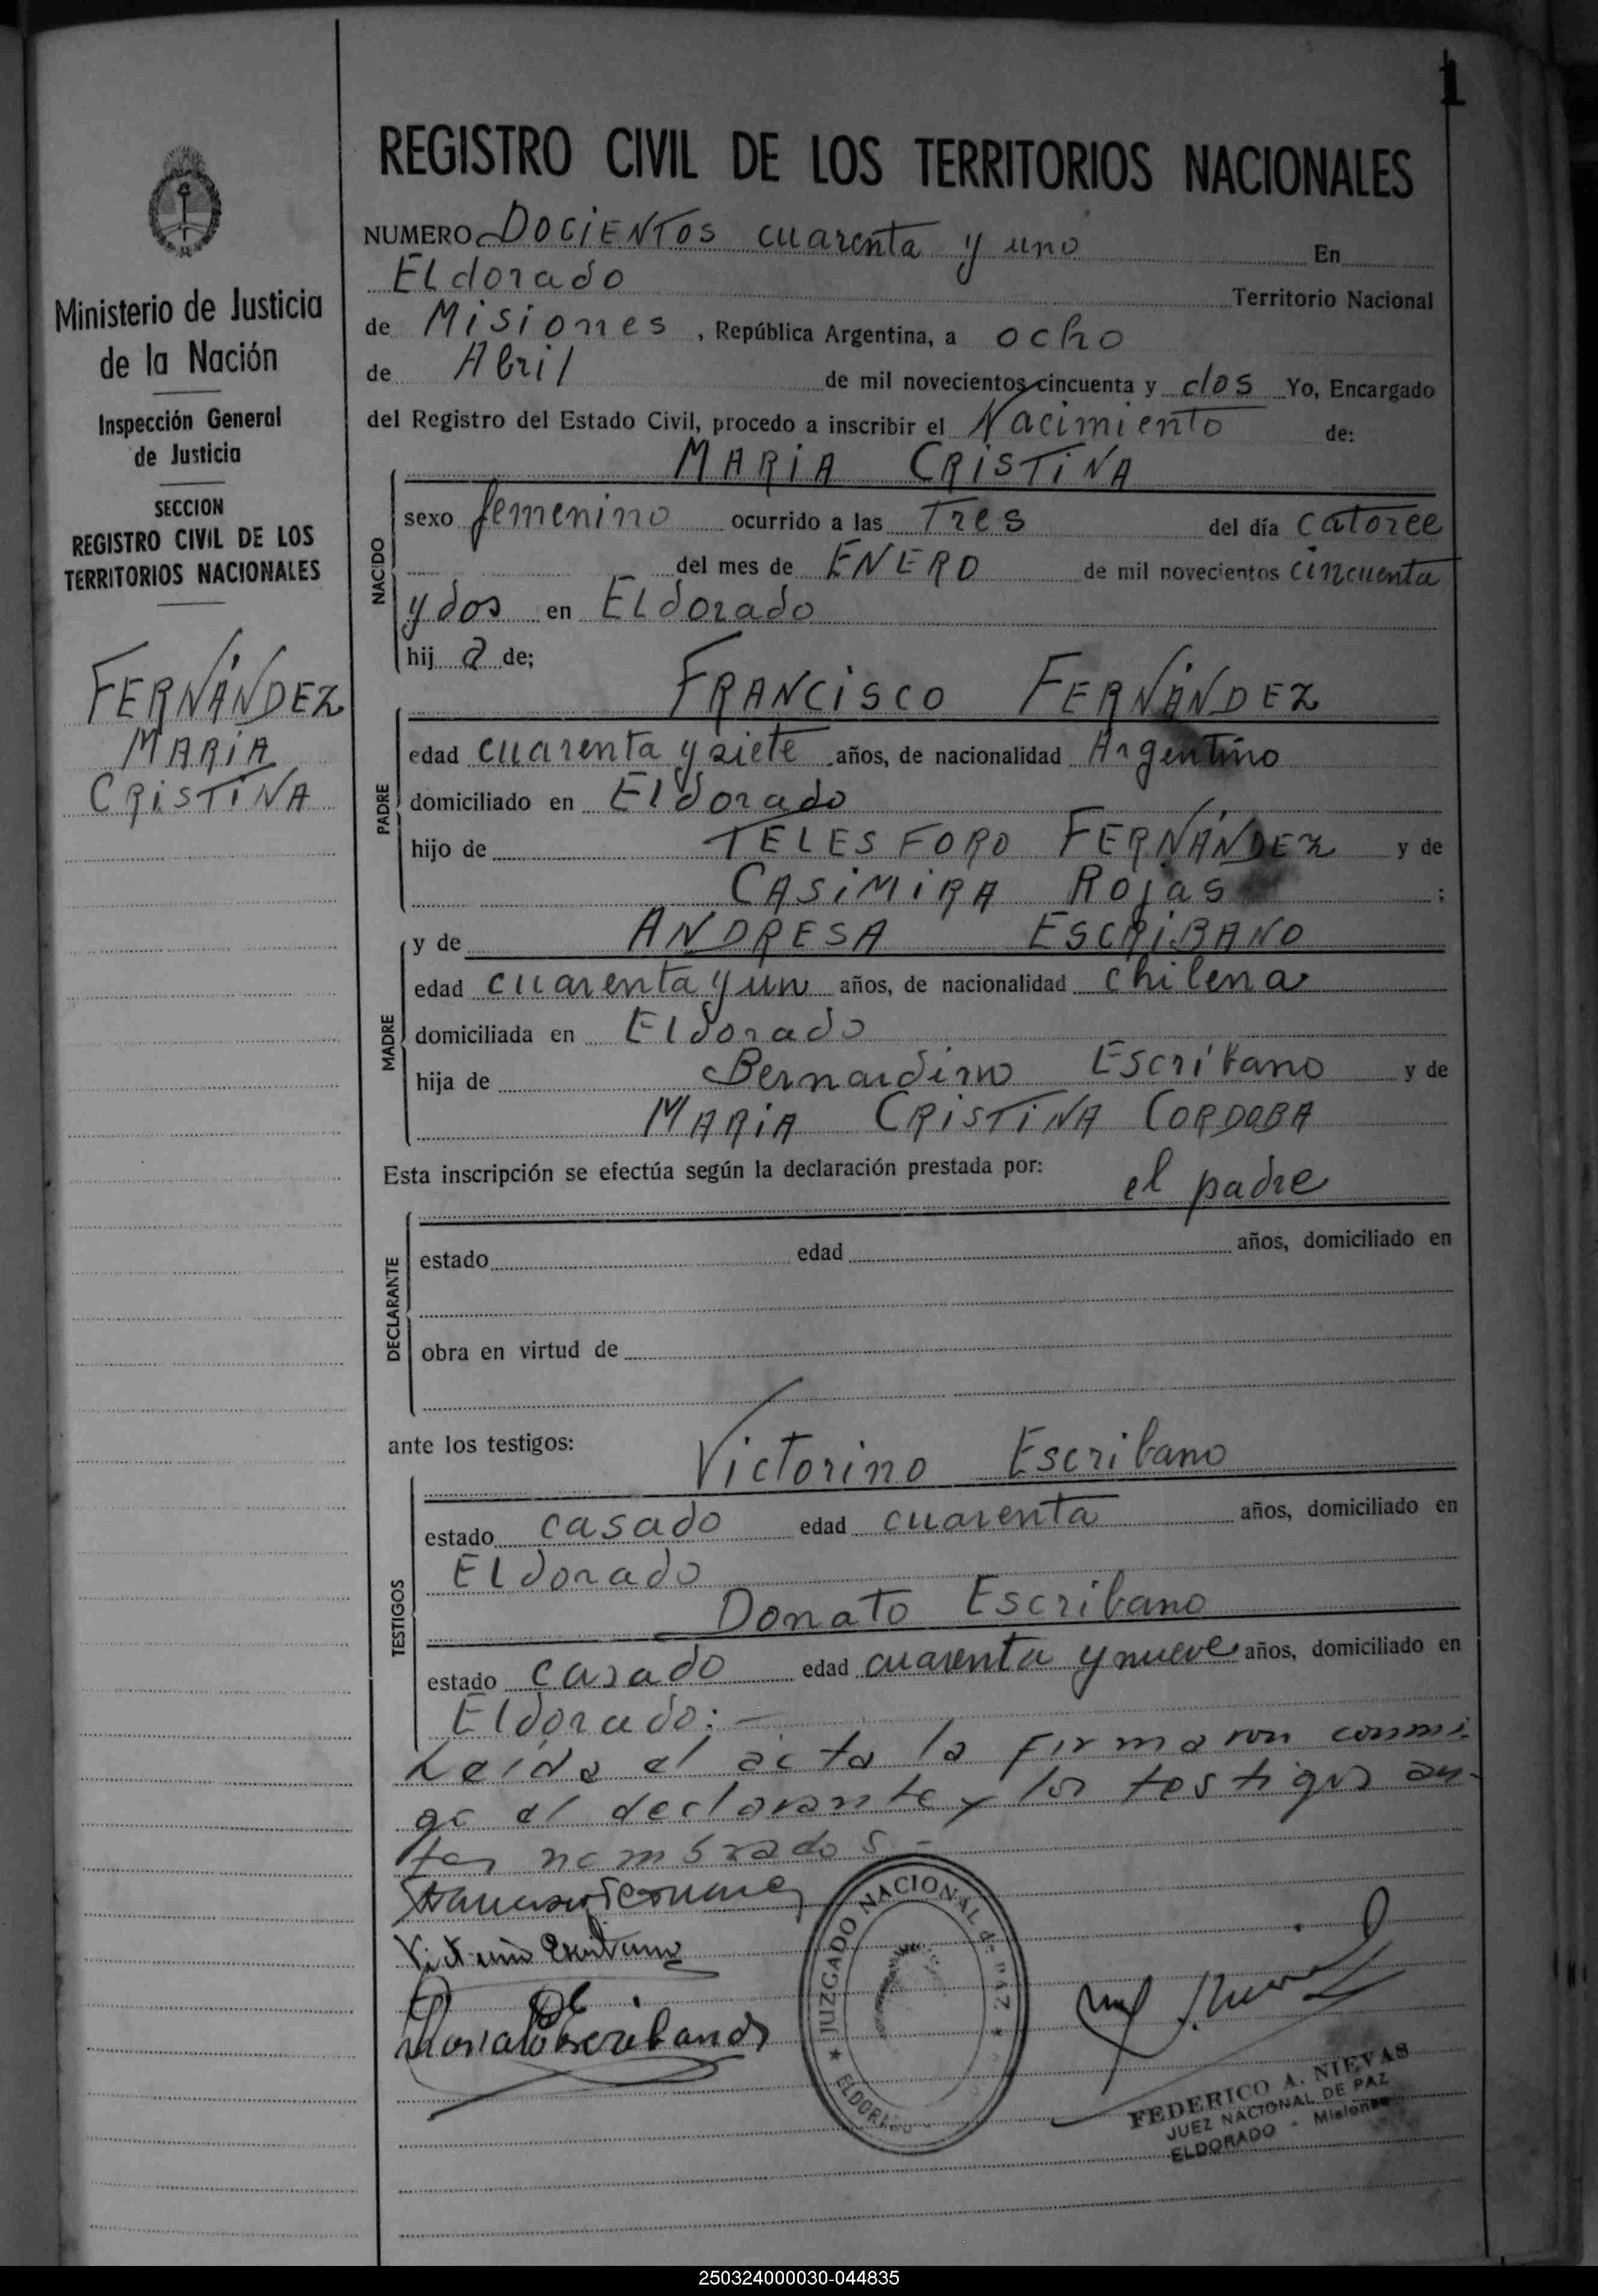 1
REGISTRO CIVIL DE LOS TERRITORIOS NACIONALES
Ministerio de Justicia
de la Nación
Inspección General
de Justicia
SECCION
REGISTRO CIVIL DE LOS
TERRITORIOS NACIONALES
FERNÁNDEZ
MARIA
CRISTINA
NUMERO DOCIENTOS cuarenta y uno En
ELdorado Territorio Nacional
de Misiones, República Argentina, a ocho
de Abril de mil novecientos cincuenta y dos Yo, Encargado
del Registro del Estado Civil, procedo a inscribir el Nacimiento de:
NACIDO
MARIA CRISTINA
sexo femenino ocurrido a las Tres del día catorce
del mes de ENERO de mil novecientos cincuenta
y dos en ELdorado
hij a de;
PADRE
FRANCISCO FERNÁNDEZ
edad cuarenta y siete años, de nacionalidad Argentino
domiciliado en Eldorado
hijo de TELESFORO FERNÁNDEZ y de
CASIMIRA Rojas ;
MADRE
y de ANDRESA ESCRIBANO
edad cuarenta y un años, de nacionalidad chilena
domiciliada en Eldorado
hija de Bernardino Escribano y de
MARIA CRISTINA CORDOBA
Esta inscripción se efectúa según la declaración prestada por: el padre
DECLARANTE
estado edad años, domiciliado en
obra en virtud de
ante los testigos: Victorino Escribano
TESTIGOS
estado casado edad cuarenta años, domiciliado en
ELdorado
Donato Escribano
estado casado edad cuarenta y nueve años, domiciliado en
Eldorado:—
Leída el acta la firmaron conmi-
go el declarante y los testigos an-
tes nombrados.-
Francisco Fernandez
Victorino Escribano
DE
Donato Escribano
JUZGADO NACIONAL de PAZ
ELDORADO
FEDERICO A. NIEVAS
JUEZ NACIONAL DE PAZ
ELDORADO - Misiones
250324000030-044835